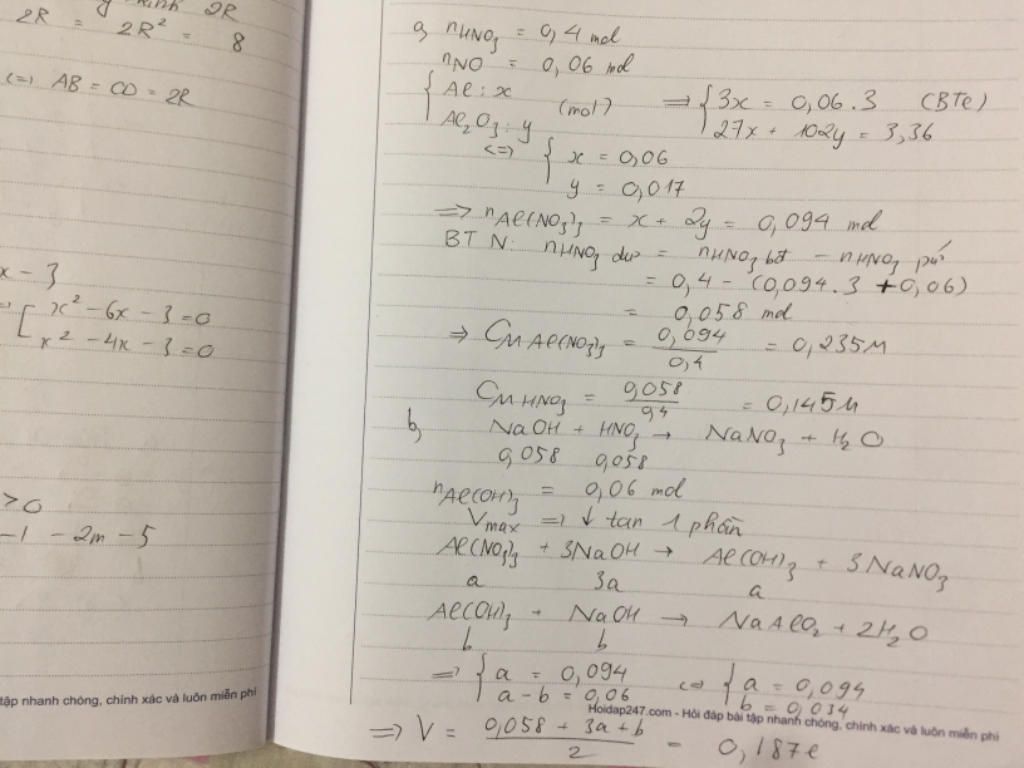 2R = 2R² = 8
(=) AB = CD = 2R
x - 3
[ x² - 6x - 3 = 0
x² - 4x - 3 = 0
> 0
-1 - 2m - 5
tập nhanh chóng, chính xác và luôn miễn phí
a, nHNO₃ = 0,4 mol
nNO = 0,06 mol
{ Al : x (mol) => { 3x = 0,06 . 3 (BTe)
Al₂O₃ : y 27x + 102y = 3,36
<=> { x = 0,06
y = 0,017
=> nAl(NO₃)₃ = x + 2y = 0,094 mol
BT N: nHNO₃ dư = nHNO₃ bđ - nHNO₃ pứ
= 0,4 - (0,094.3 + 0,06)
= 0,058 mol
=> CM Al(NO₃)₃ = 0,094 / 0,4 = 0,235M
CM HNO₃ = 0,058 / 0,4 = 0,145M
b, NaOH + HNO₃ → NaNO₃ + H₂O
0,058 0,058
nAl(OH)₃ = 0,06 mol
Vmax => ↓ tan 1 phần
Al(NO₃)₃ + 3NaOH → Al(OH)₃ + 3NaNO₃
a 3a a
Al(OH)₃ + NaOH → NaAlO₂ + 2H₂O
b b
=> { a = 0,094 <=> { a = 0,094
a - b = 0,06 b = 0,034
Hoidap247.com - Hỏi đáp bài tập nhanh chóng, chính xác và luôn miễn phí
=> V = 0,058 + 3a + b / 2 = 0,187l